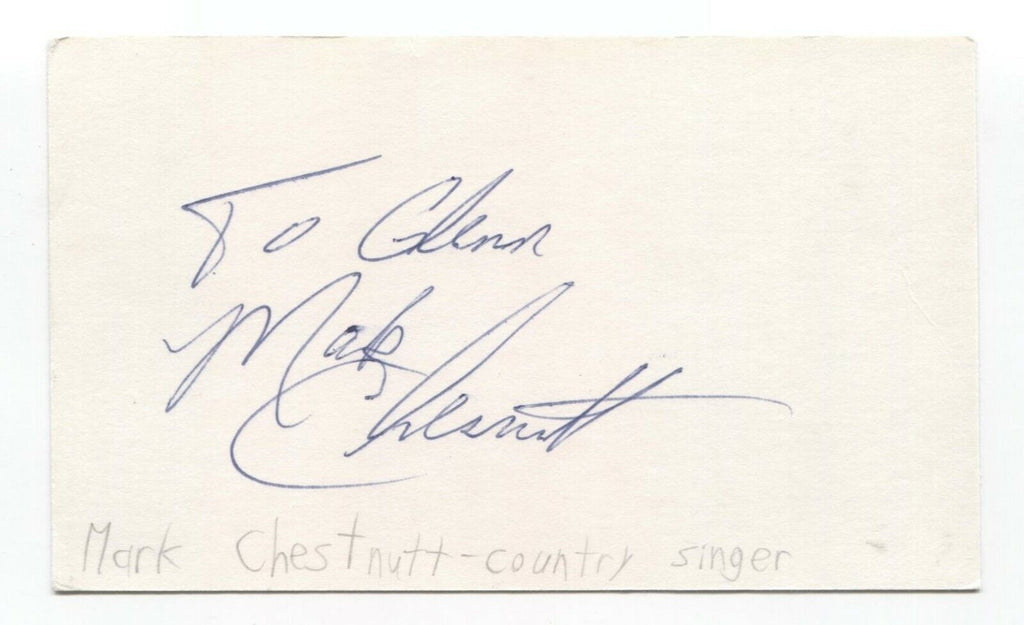 To Glenn
Mark
Chesnutt
Mark Chestnutt - country singer